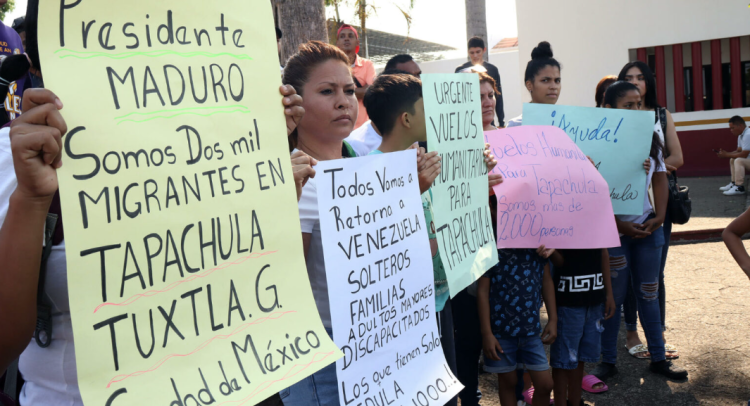 Presidente
MADURO
Somos Dos mil
MIGRANTES EN
TAPACHULA
TUXTLA.G.
Ciudad de México
Todos Vamos a
Retorno a
VENEZUELA
SOLTEROS
FAMILIAS
ADULTOS MAYORES
DISCAPACITADOS
Los que tienen Solo
URGENTE
VUELOS
HUMANITARIOS
PARA
TAPACHULA
Vuelos Humanita
Tapachula
Somos más de
2,000 persona
¡Ayuda!